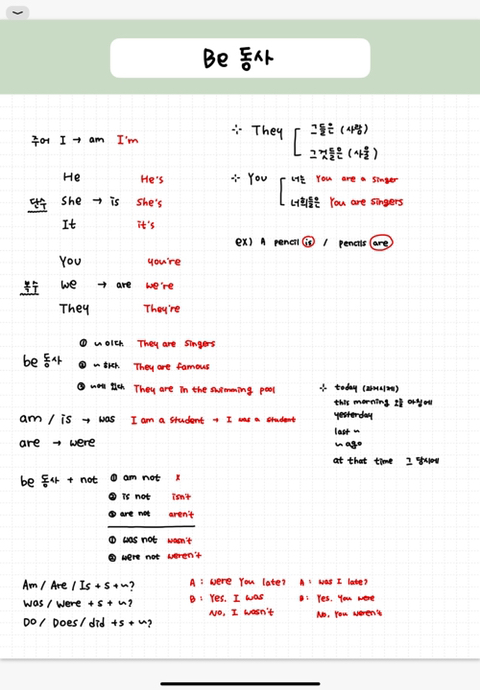 Be 동사
주어 I → am I'm
※ They 그들은 (사람)
그것들은 (사물)
He He's
단수 She → is She's
It it's
※ You 너는 You are a singer
너희들은 You are singers
ex) A pencil is / pencils are
You you're
복수 We → are we're
They They're
be 동사 ① ~이다. They are singers
② ~하다. They are famous
③ ~에 있다 They are in the swimming pool
am / is → was I am a student → I was a student
are → were
※ today (과거시제)
this morning 오늘 아침에
yesterday
last ~
~ ago
at that time 그 당시에
be 동사 + not ① am not x
② is not isn't
③ are not aren't
① was not wasn't
② were not weren't
Am / Are / Is + s + ~?
Was / Were + s + ~?
Do / Does / did + s + ~?
A : Were You late?
B : Yes. I was
No, I wasn't
A : Was I late?
B : Yes. You were
No. You weren't